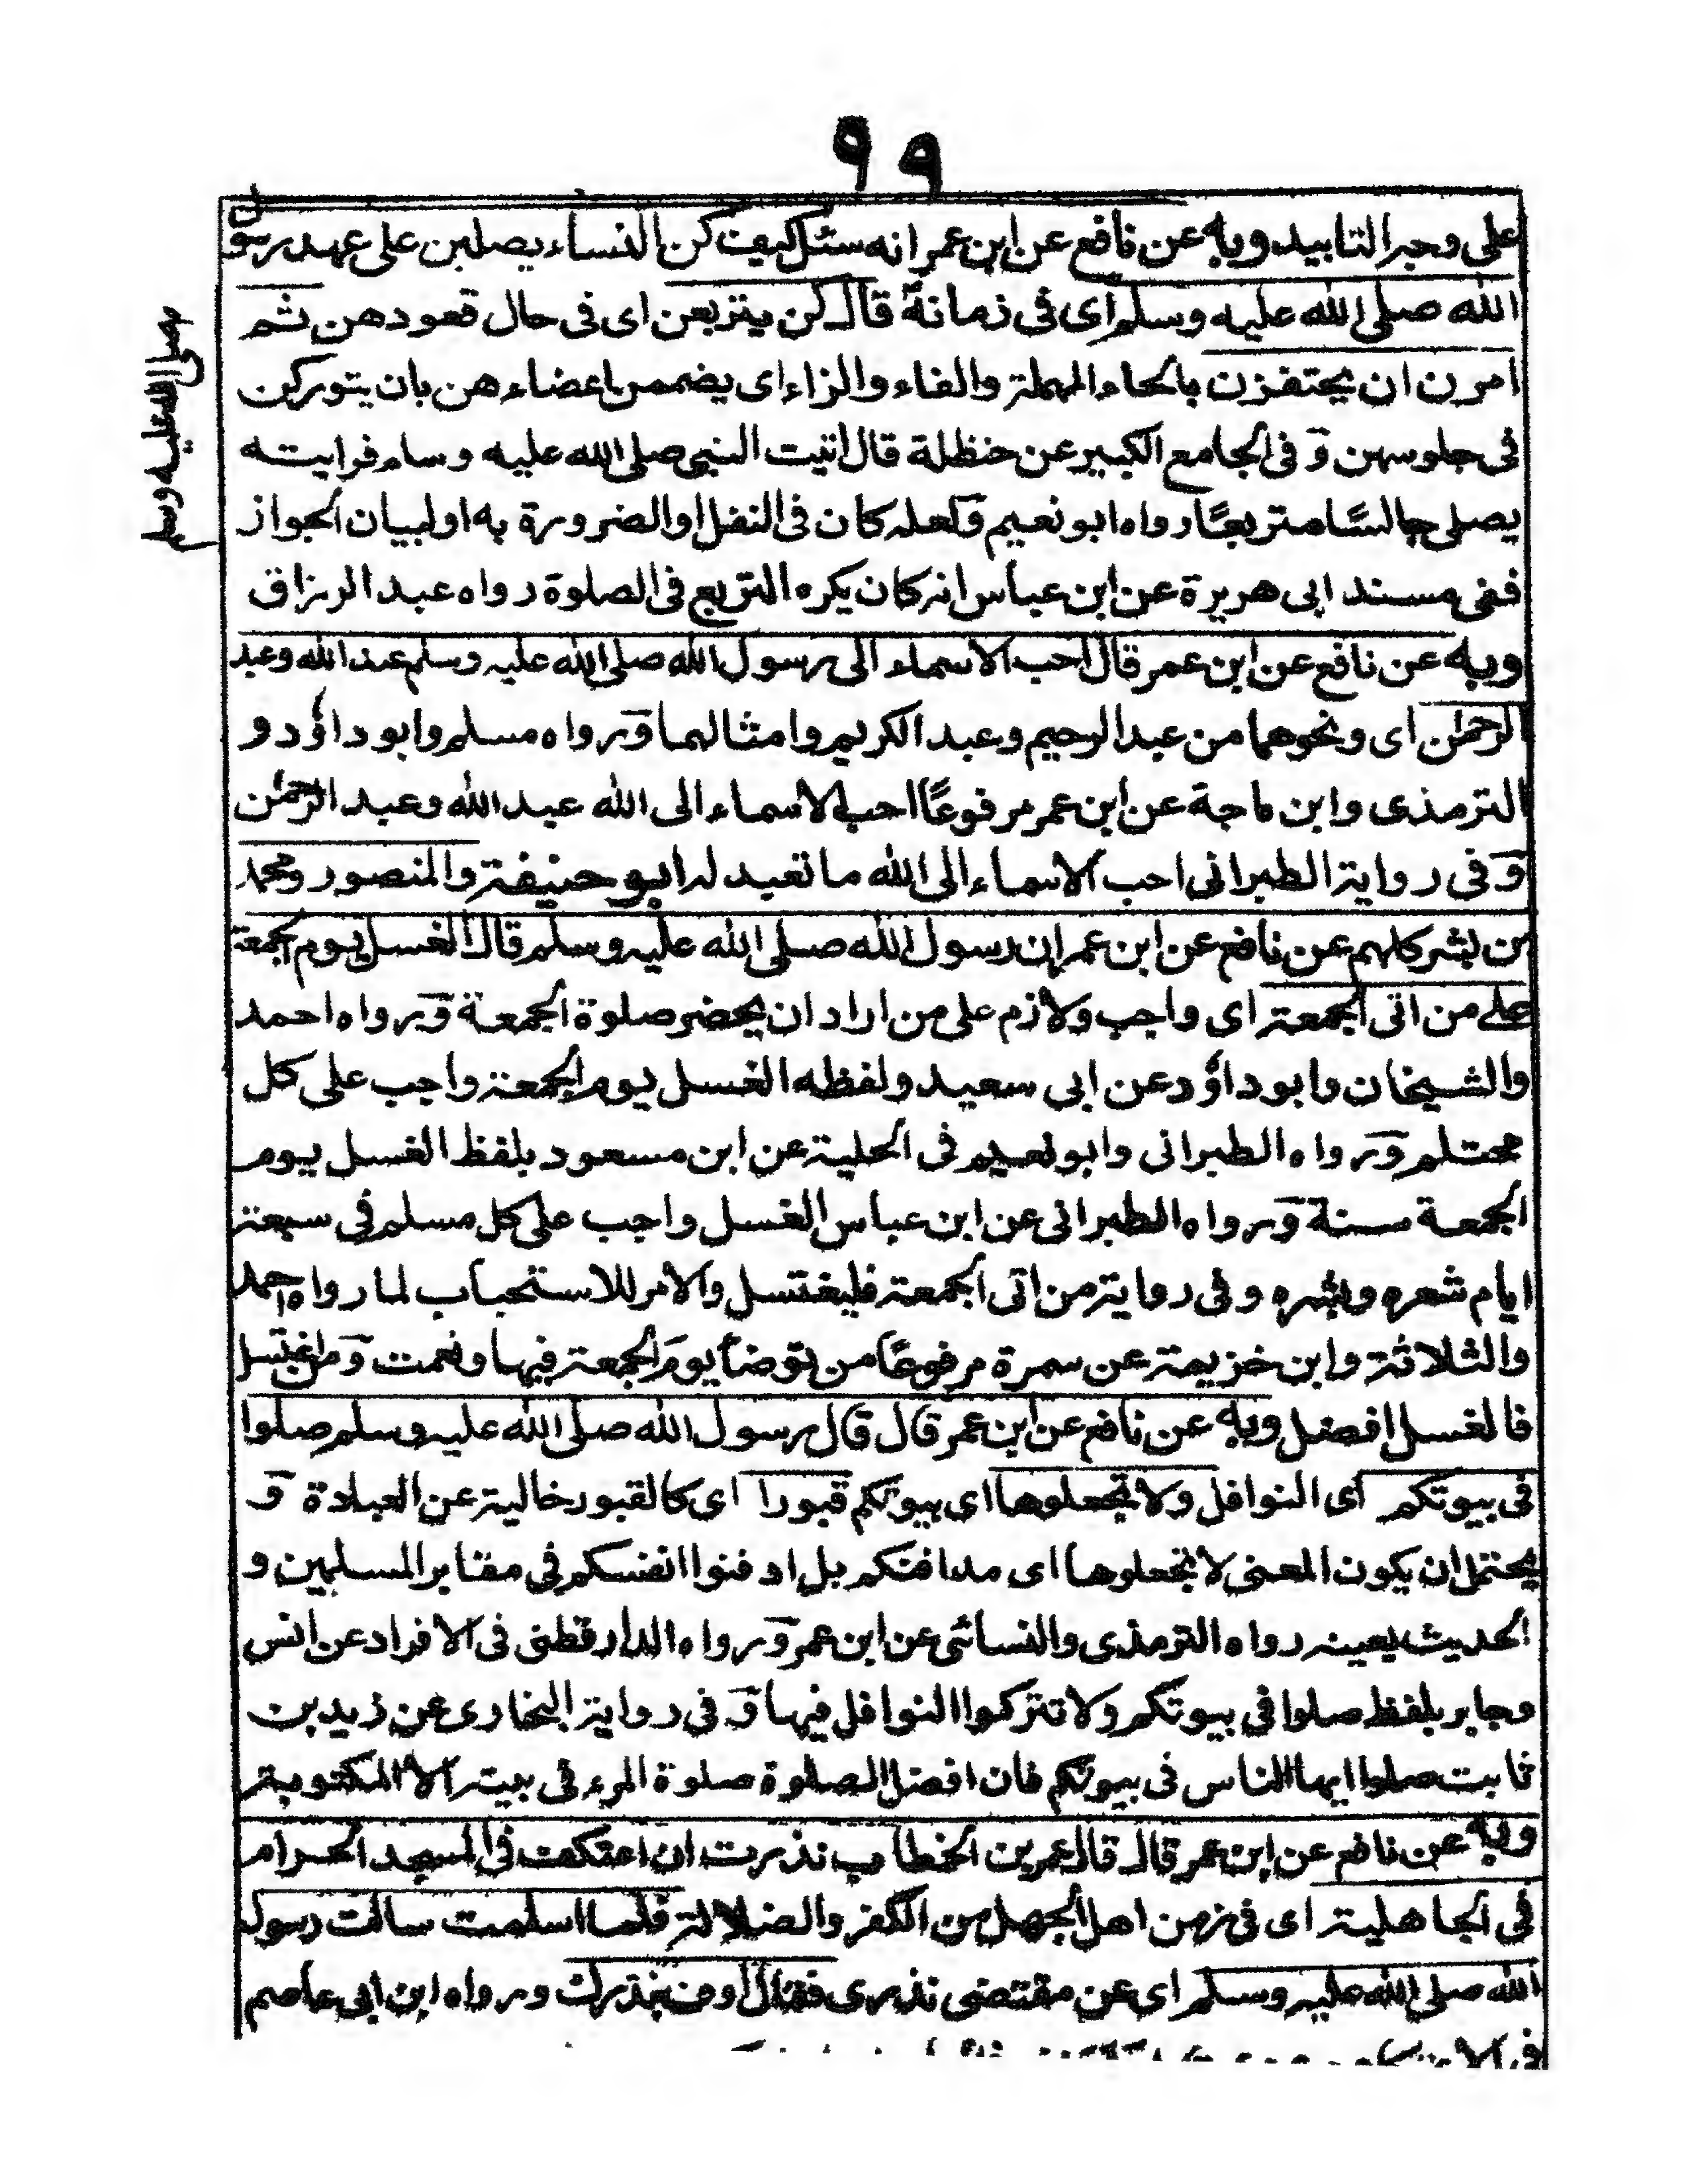 ٩٩
على وجه التابيد وبه عن نافع عن ابن عمر انه سئل كيف كن النساء يصلين على عهد رسول
الله صلى الله عليه وسلم اى فى زمانة قال كن يتربعن اى فى حال قعودهن ثم
امرن ان يحتفزن بالحاء المهملة والفاء والزاء اى يضممن اعضاءهن بان يتوركن
فى جلوسهن و فى الجامع الكبير عن حنظلة قال اتيت النبى صلى الله عليه وسلم فرايته
يصلى جالسًا متربعًا رواه ابو نعيم ولعله كان فى النفل او الضرورة به او لبيان الجواز
ففى مسند ابى هريرة عن ابن عباس انه كان يكره التربع فى الصلوة رواه عبد الرزاق
وبه عن نافع عن ابن عمر قال احب الاسماء الى رسول الله صلى الله عليه وسلم عبد الله وعبد
الرحمٰن اى ونحوهما من عبد الرحيم وعبد الكريم وامثالهما ورواه مسلم وابو داؤد و
الترمذى وابن ماجة عن ابن عمر مرفوعًا احب الاسماء الى الله عبد الله وعبد الرحمٰن
و فى رواية الطبرانى احب الاسماء الى الله ما تعبد له ابو حنيفة والمنصور ومحمد
بن بشر كلهم عن نافع عن ابن عمر ان رسول الله صلى الله عليه وسلم قال الغسل يوم الجمعة
على من اتى الجمعة اى واجب ولازم على من اراد ان يحضر صلوة الجمعة ورواه احمد
والشيخان وابو داؤد عن ابى سعيد ولفظه الغسل يوم الجمعة واجب على كل
محتلم ورواه الطبرانى وابو نعيم فى الحلية عن ابن مسعود بلفظ الغسل يوم
الجمعة سنة ورواه الطبرانى عن ابن عباس الغسل واجب على كل مسلم فى سبعة
ايام شعره وبشره و فى رواية من اتى الجمعة فليغتسل والامر للاستحباب لما رواه احمد
والثلاثة وابن خزيمة عن سمرة مرفوعًا من توضأ يوم الجمعة فبها ونعمت ومن اغتسل
فالغسل افضل وبه عن نافع عن ابن عمر قال قال رسول الله صلى الله عليه وسلم صلوا
فى بيوتكم اى النوافل ولا تجعلوها اى بيوتكم قبورا اى كالقبور خالية عن العبادة و
يحتمل ان يكون المعنى لا تجعلوها اى مدافنكم بل ادفنوا انفسكم فى مقابر المسلمين و
الحديث بعينه رواه الترمذى والنسائى عن ابن عمر ورواه الدارقطنى فى الافراد عن انس
وجابر بلفظ صلوا فى بيوتكم ولا تتركوا النوافل فيها و فى رواية البخارى عن زيد بن
ثابت صلوا ايها الناس فى بيوتكم فان افضل الصلوة صلوة المرء فى بيته الا المكتوبة
وبه عن نافع عن ابن عمر قال قال عمر بن الخطاب نذرت ان اعتكف فى المسجد الحرام
فى الجاهلية اى فى زمن اهل الجهل من الكفر والضلالة فلما اسلمت سالت رسول
الله صلى الله عليه وسلم اى عن مقتضى نذرى فقال اوف بنذرك ورواه ابن ابى عاصم
صلى الله عليه وسلم